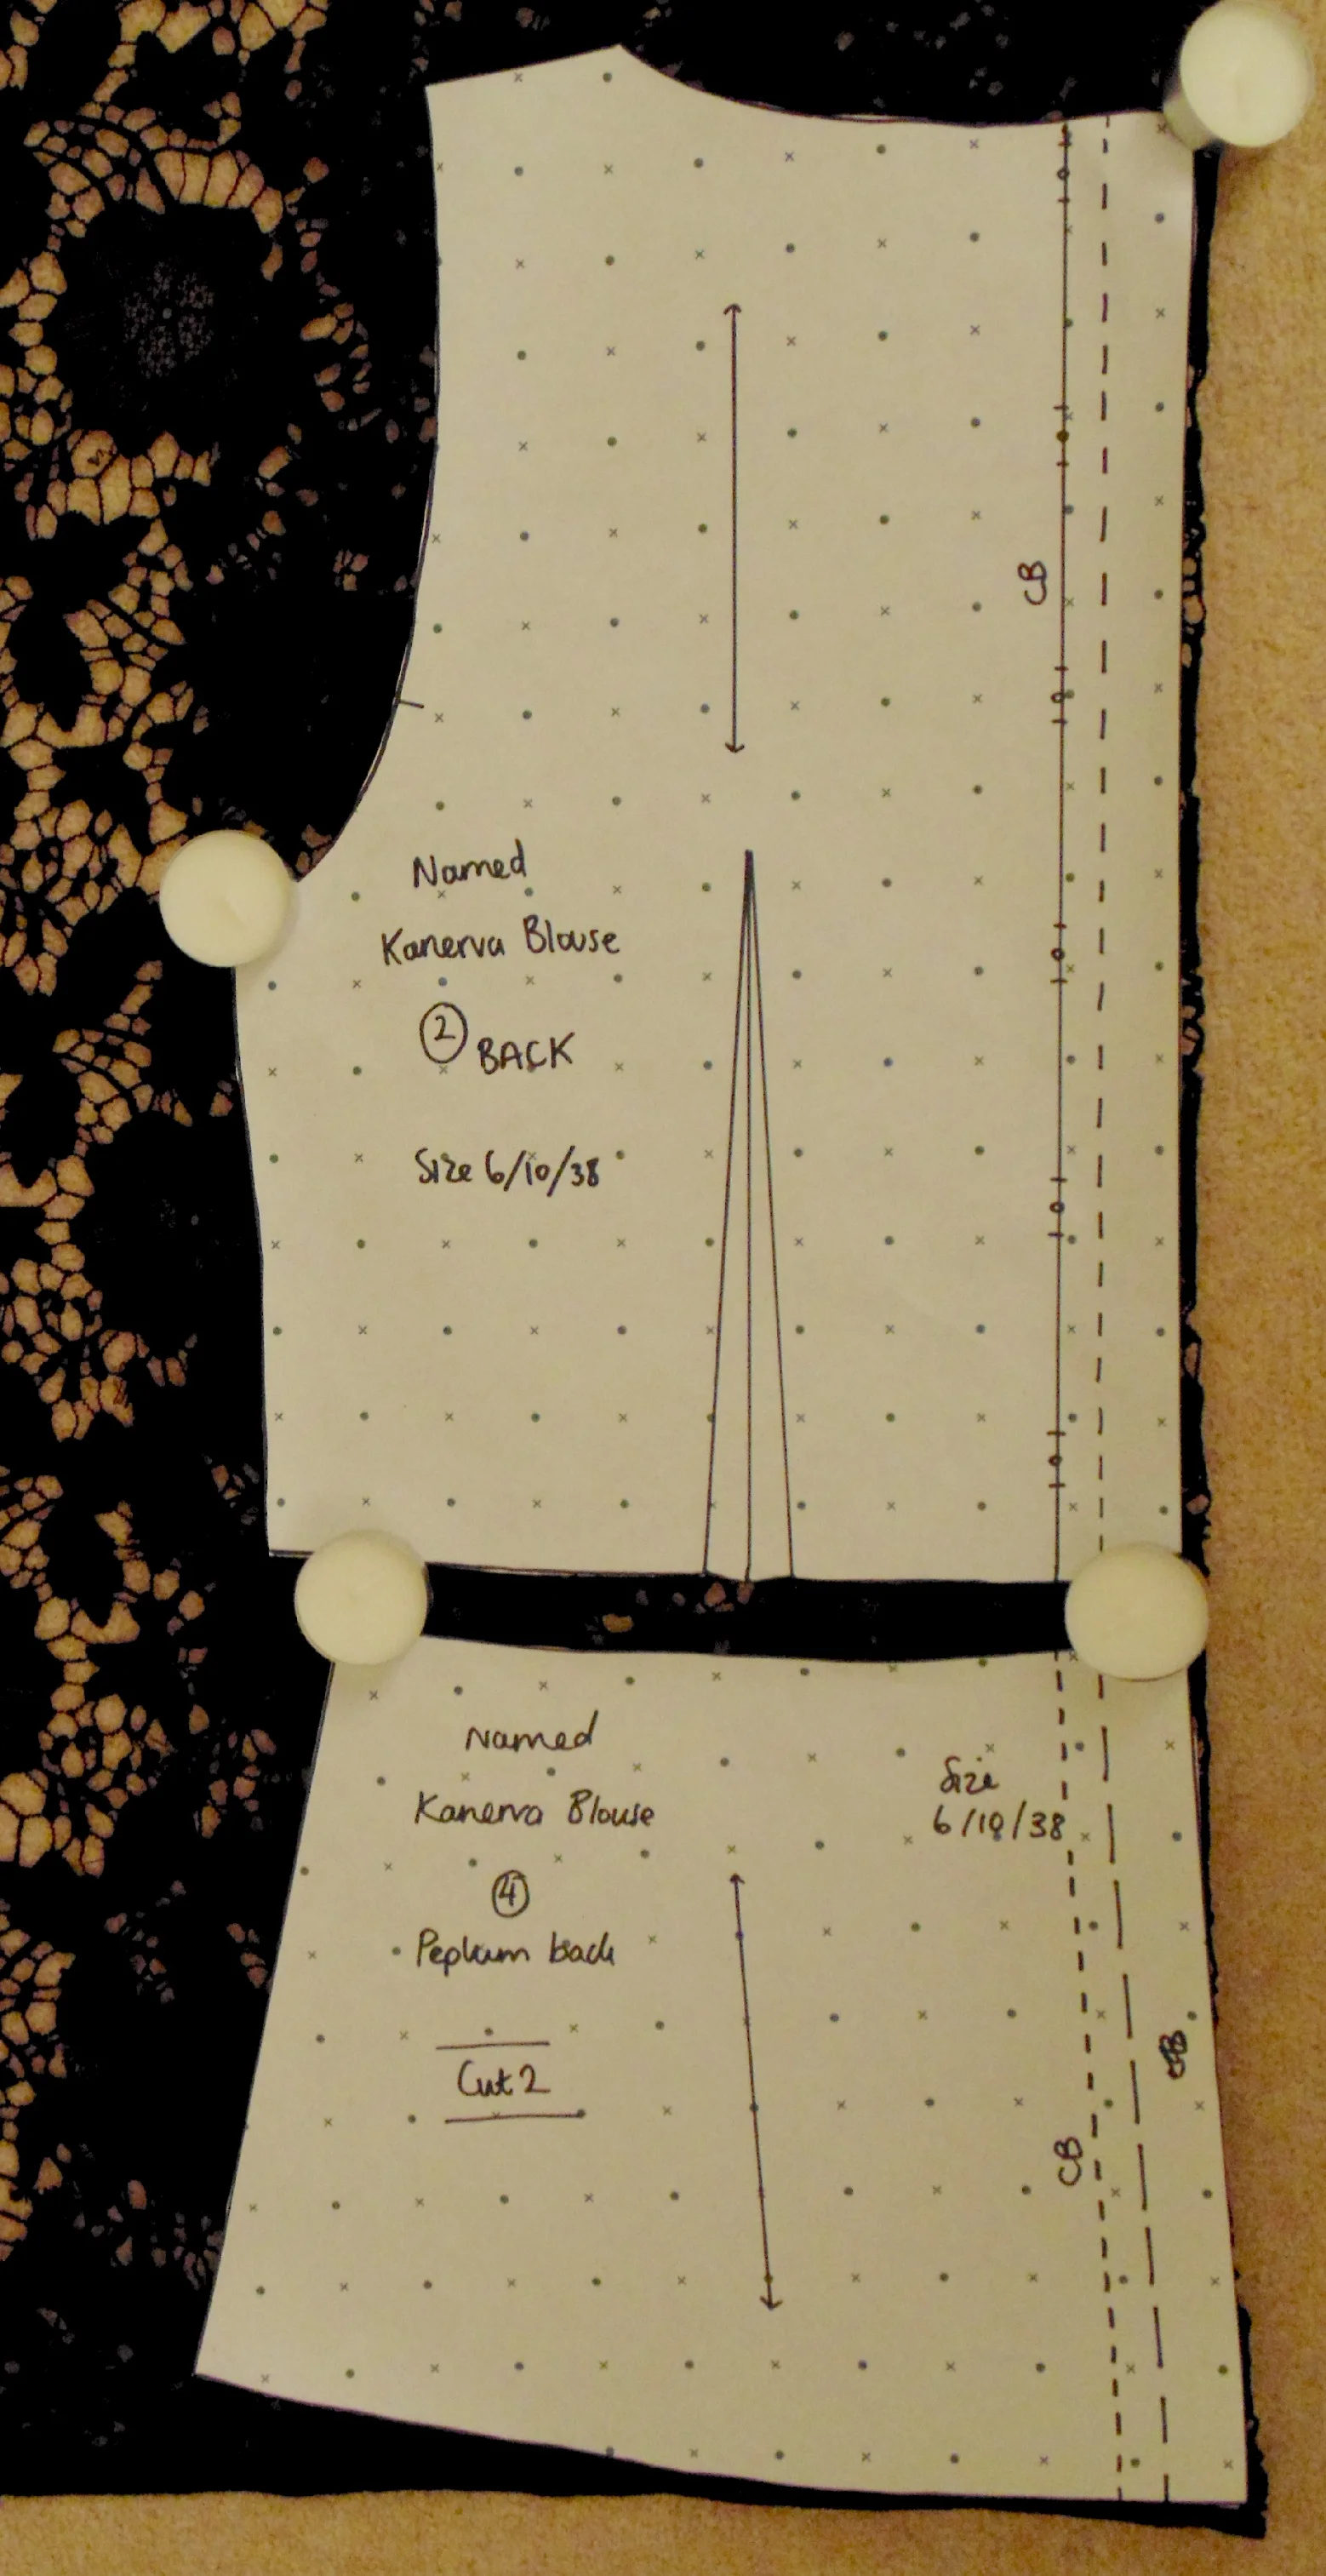 CB
Named
Kanerva Blouse
2 BACK
Size 6/10/38
Named
Kanerva Blouse
Size
6/10/38
4
Peplum back
Cut 2
CB